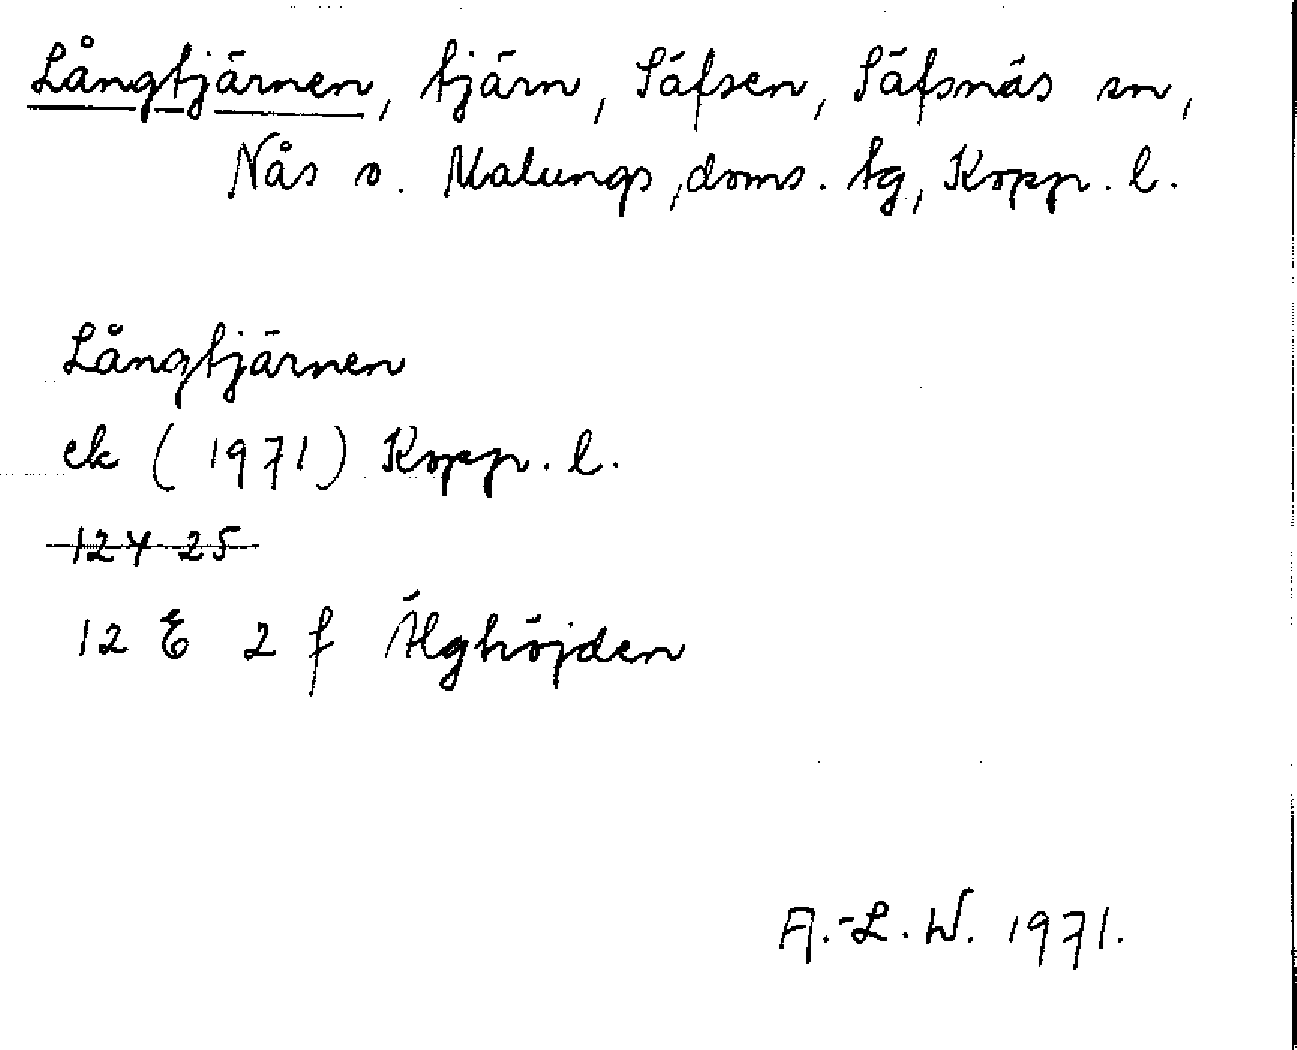 Långtjärnen, tjärn, Säfsen, Säfsnäs sn,
Nås o. Malungs, doms. tg, Kopp. l.
Långtjärnen
ek (1971) Kopp. l.
12Y 25
12 E 2 f Älghöjden
A.-L. W. 1971.